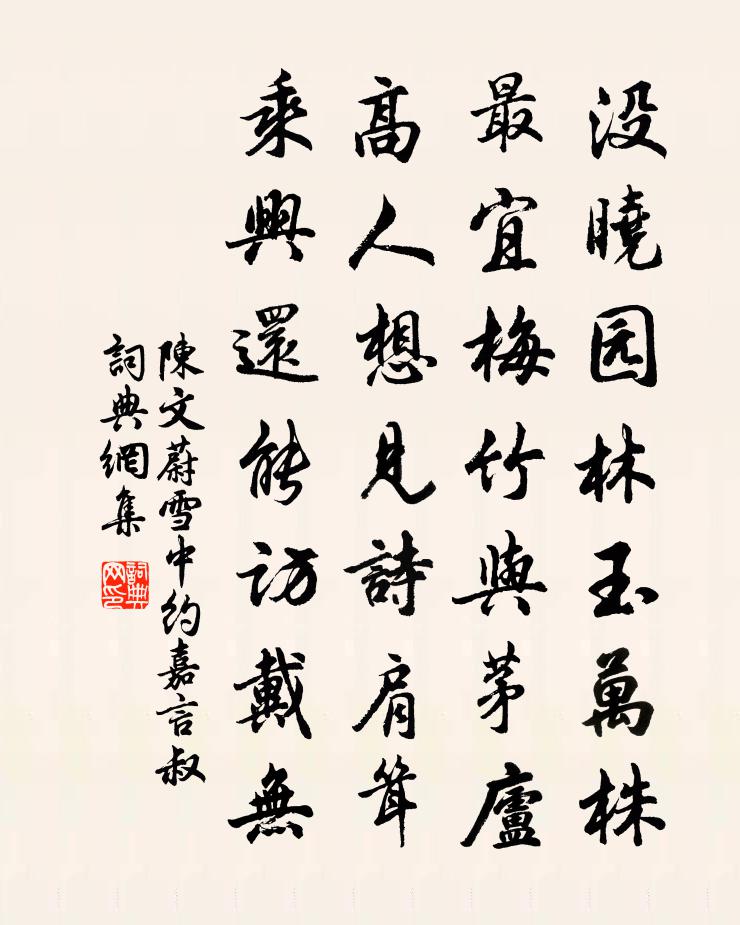 没曉园林玉萬株
最宜梅竹與茅廬
高人想見詩肩聳
乘興還能訪戴無
陳文蔚雪中約嘉言叔
詞典網集
詞典网印